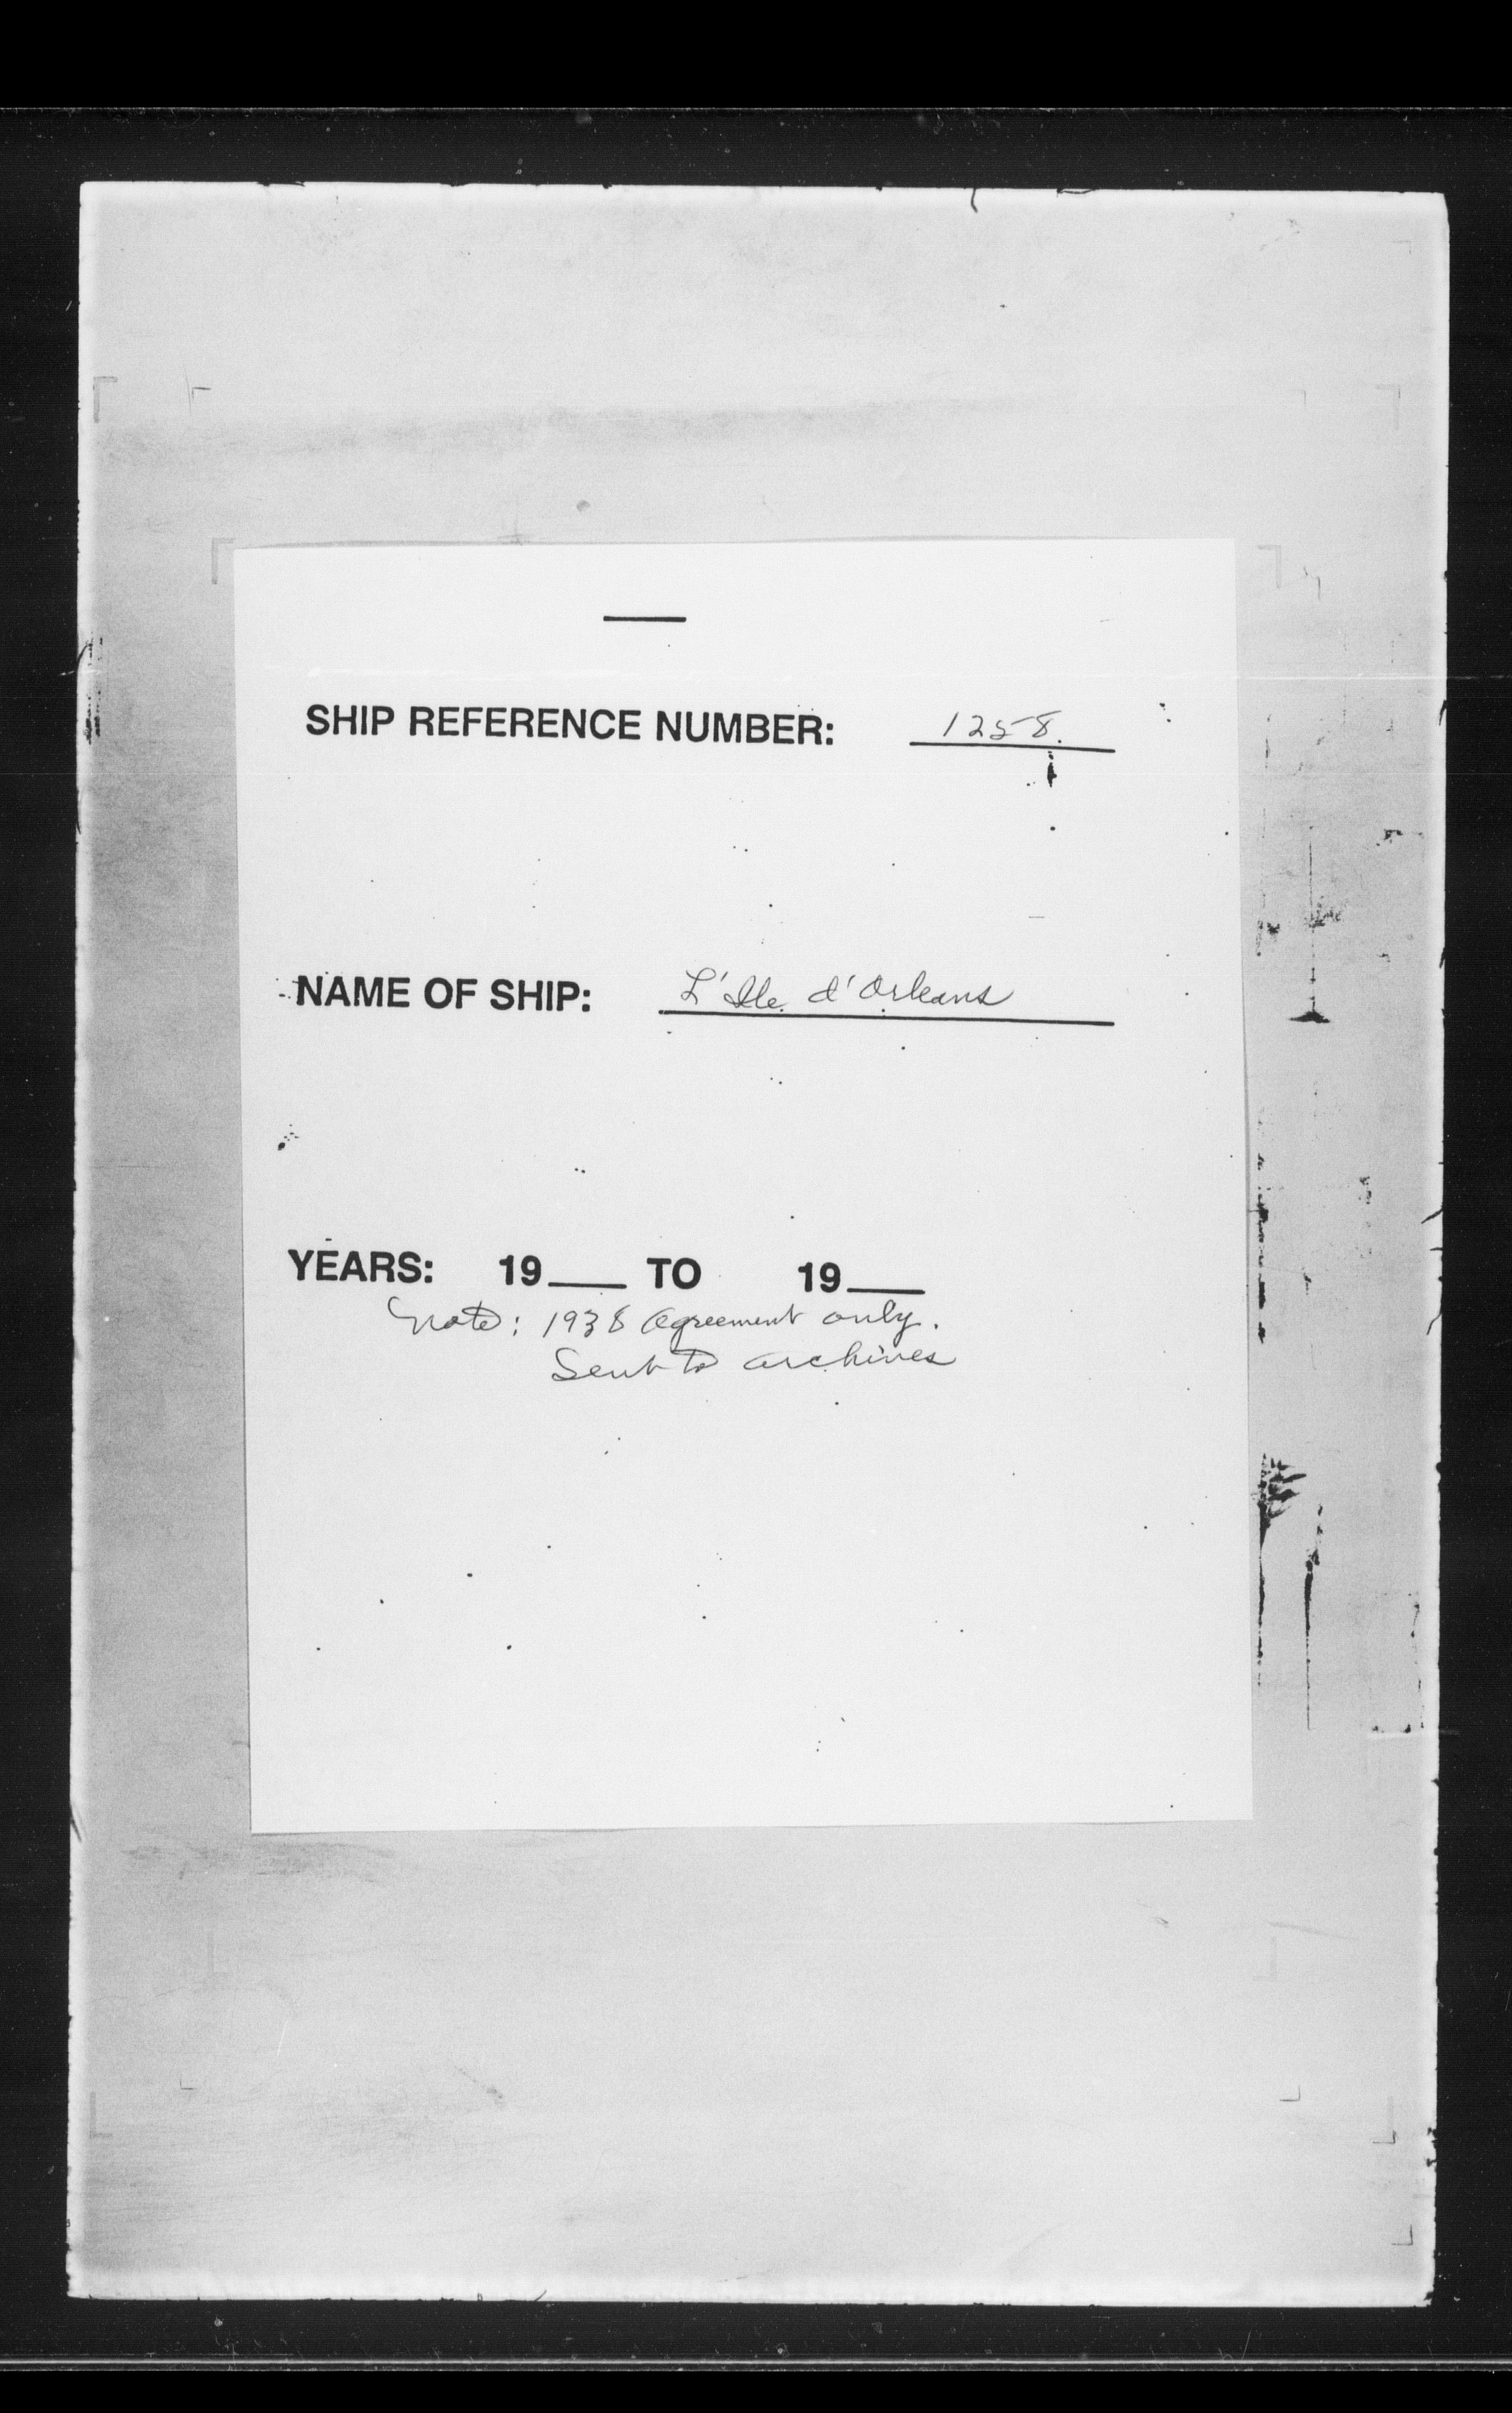 SHIP REFERENCE NUMBER: 1258.
NAME OF SHIP: L'Ile d'Orleans
YEARS: 19___ TO 19___
Note: 1938 Agreement only.
Sent to archives